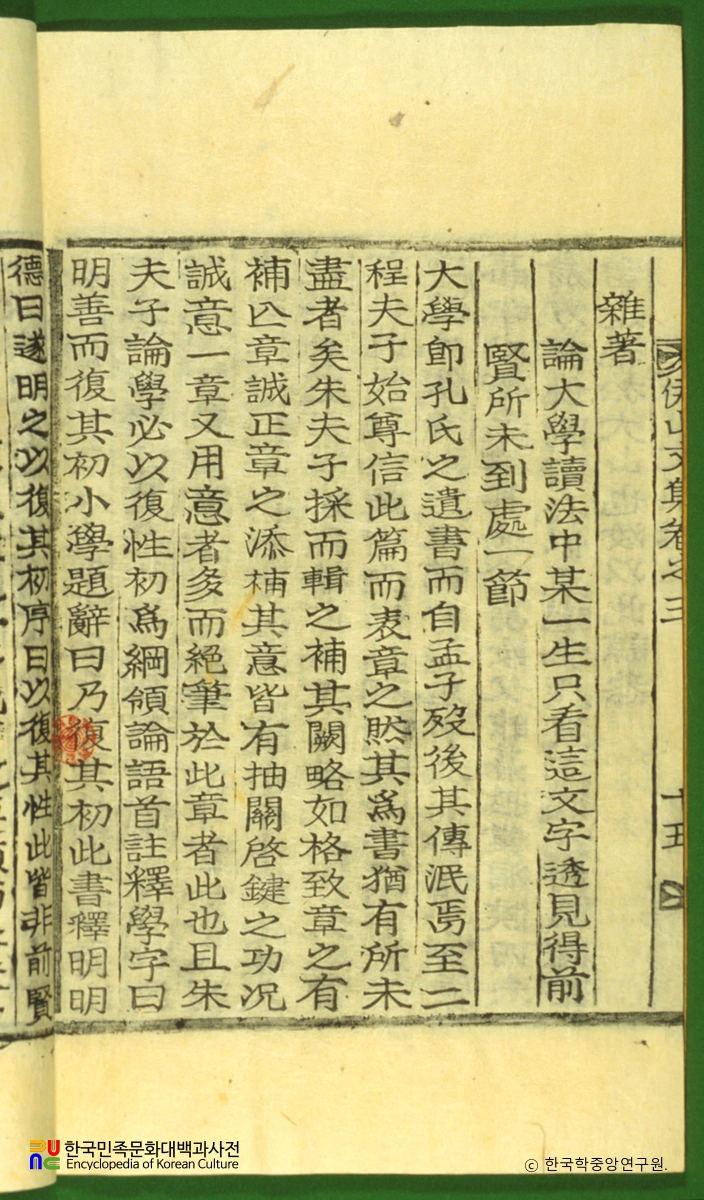 伊山文集卷之三
十五
雜著
論大學讀法中某一生只看這文字透見得前
賢所未到處一節
大學卽孔氏之遺書而自孟子歿後其傳泯焉至二
程夫子始尊信此篇而表章之然其爲書猶有所未
盡者矣朱夫子採而輯之補其闕略如格致章之有
補亡章誠正章之添補其意皆有抽關啓鍵之功况
誠意一章又用意者多而絕筆於此章者此也且朱
夫子論學必以復性初爲綱領論語首註釋學字曰
明善而復其初小學題辭曰乃復其初此書釋明明
德曰遂明之以復其初序曰以復其性此皆非前賢
한국민족문화대백과사전
Encyclopedia of Korean Culture
© 한국학중앙연구원.